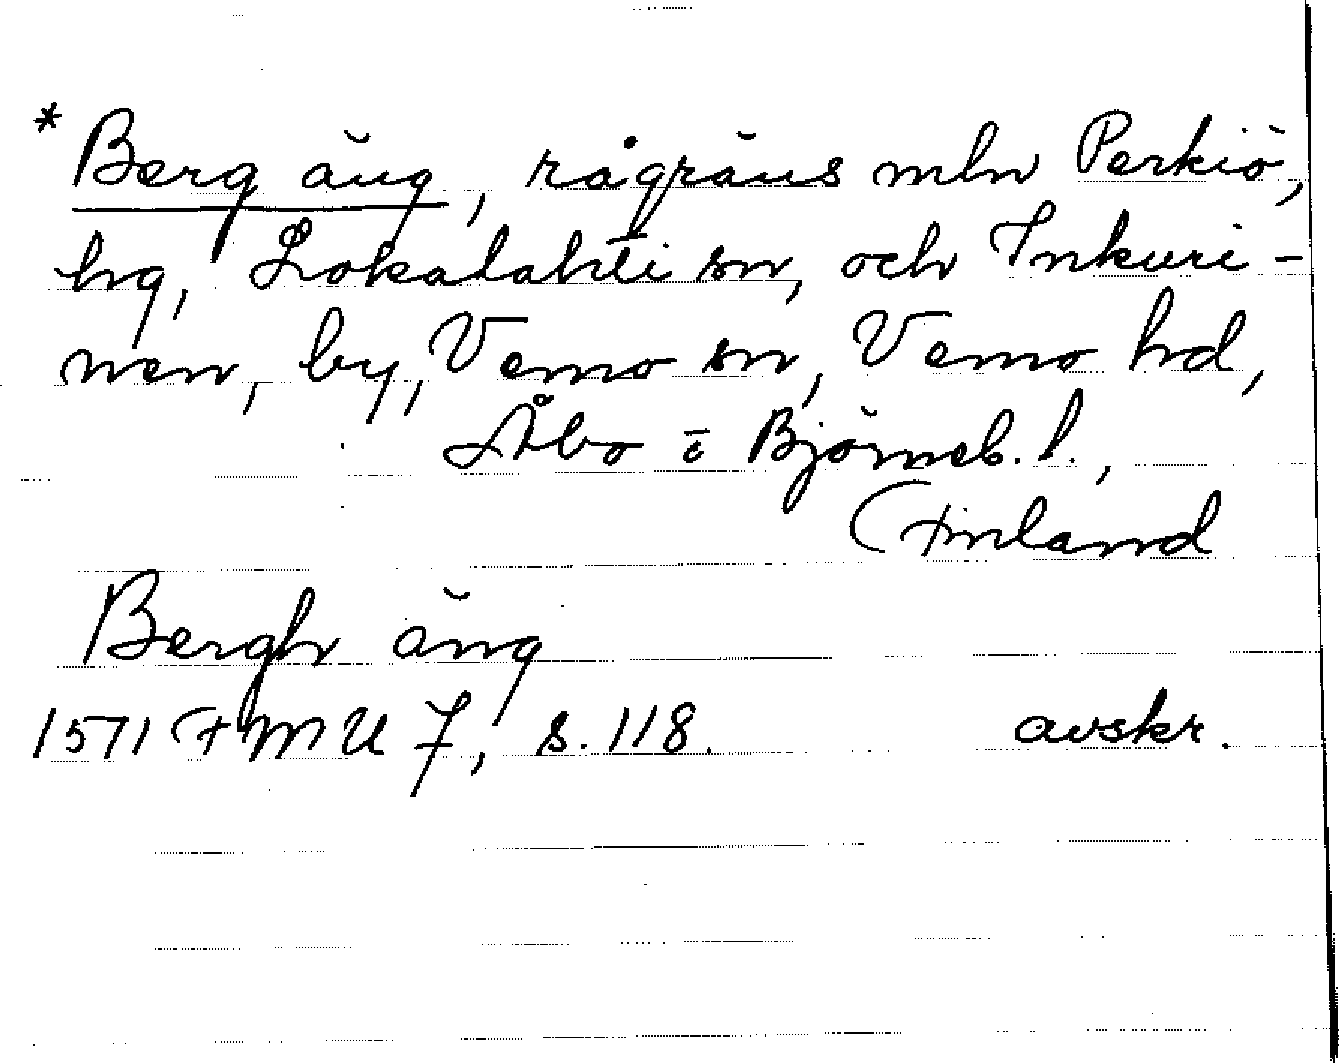 * Berg äng, rågräns mln Perkiö,
hg, Lokalahti sn, och Inkuri-
nen, by, Vemo sn, Vemo hd,
Åbo o Björneb. l.,
Finland
Bergh äng
1571 FMU 7, s. 118. avskr.